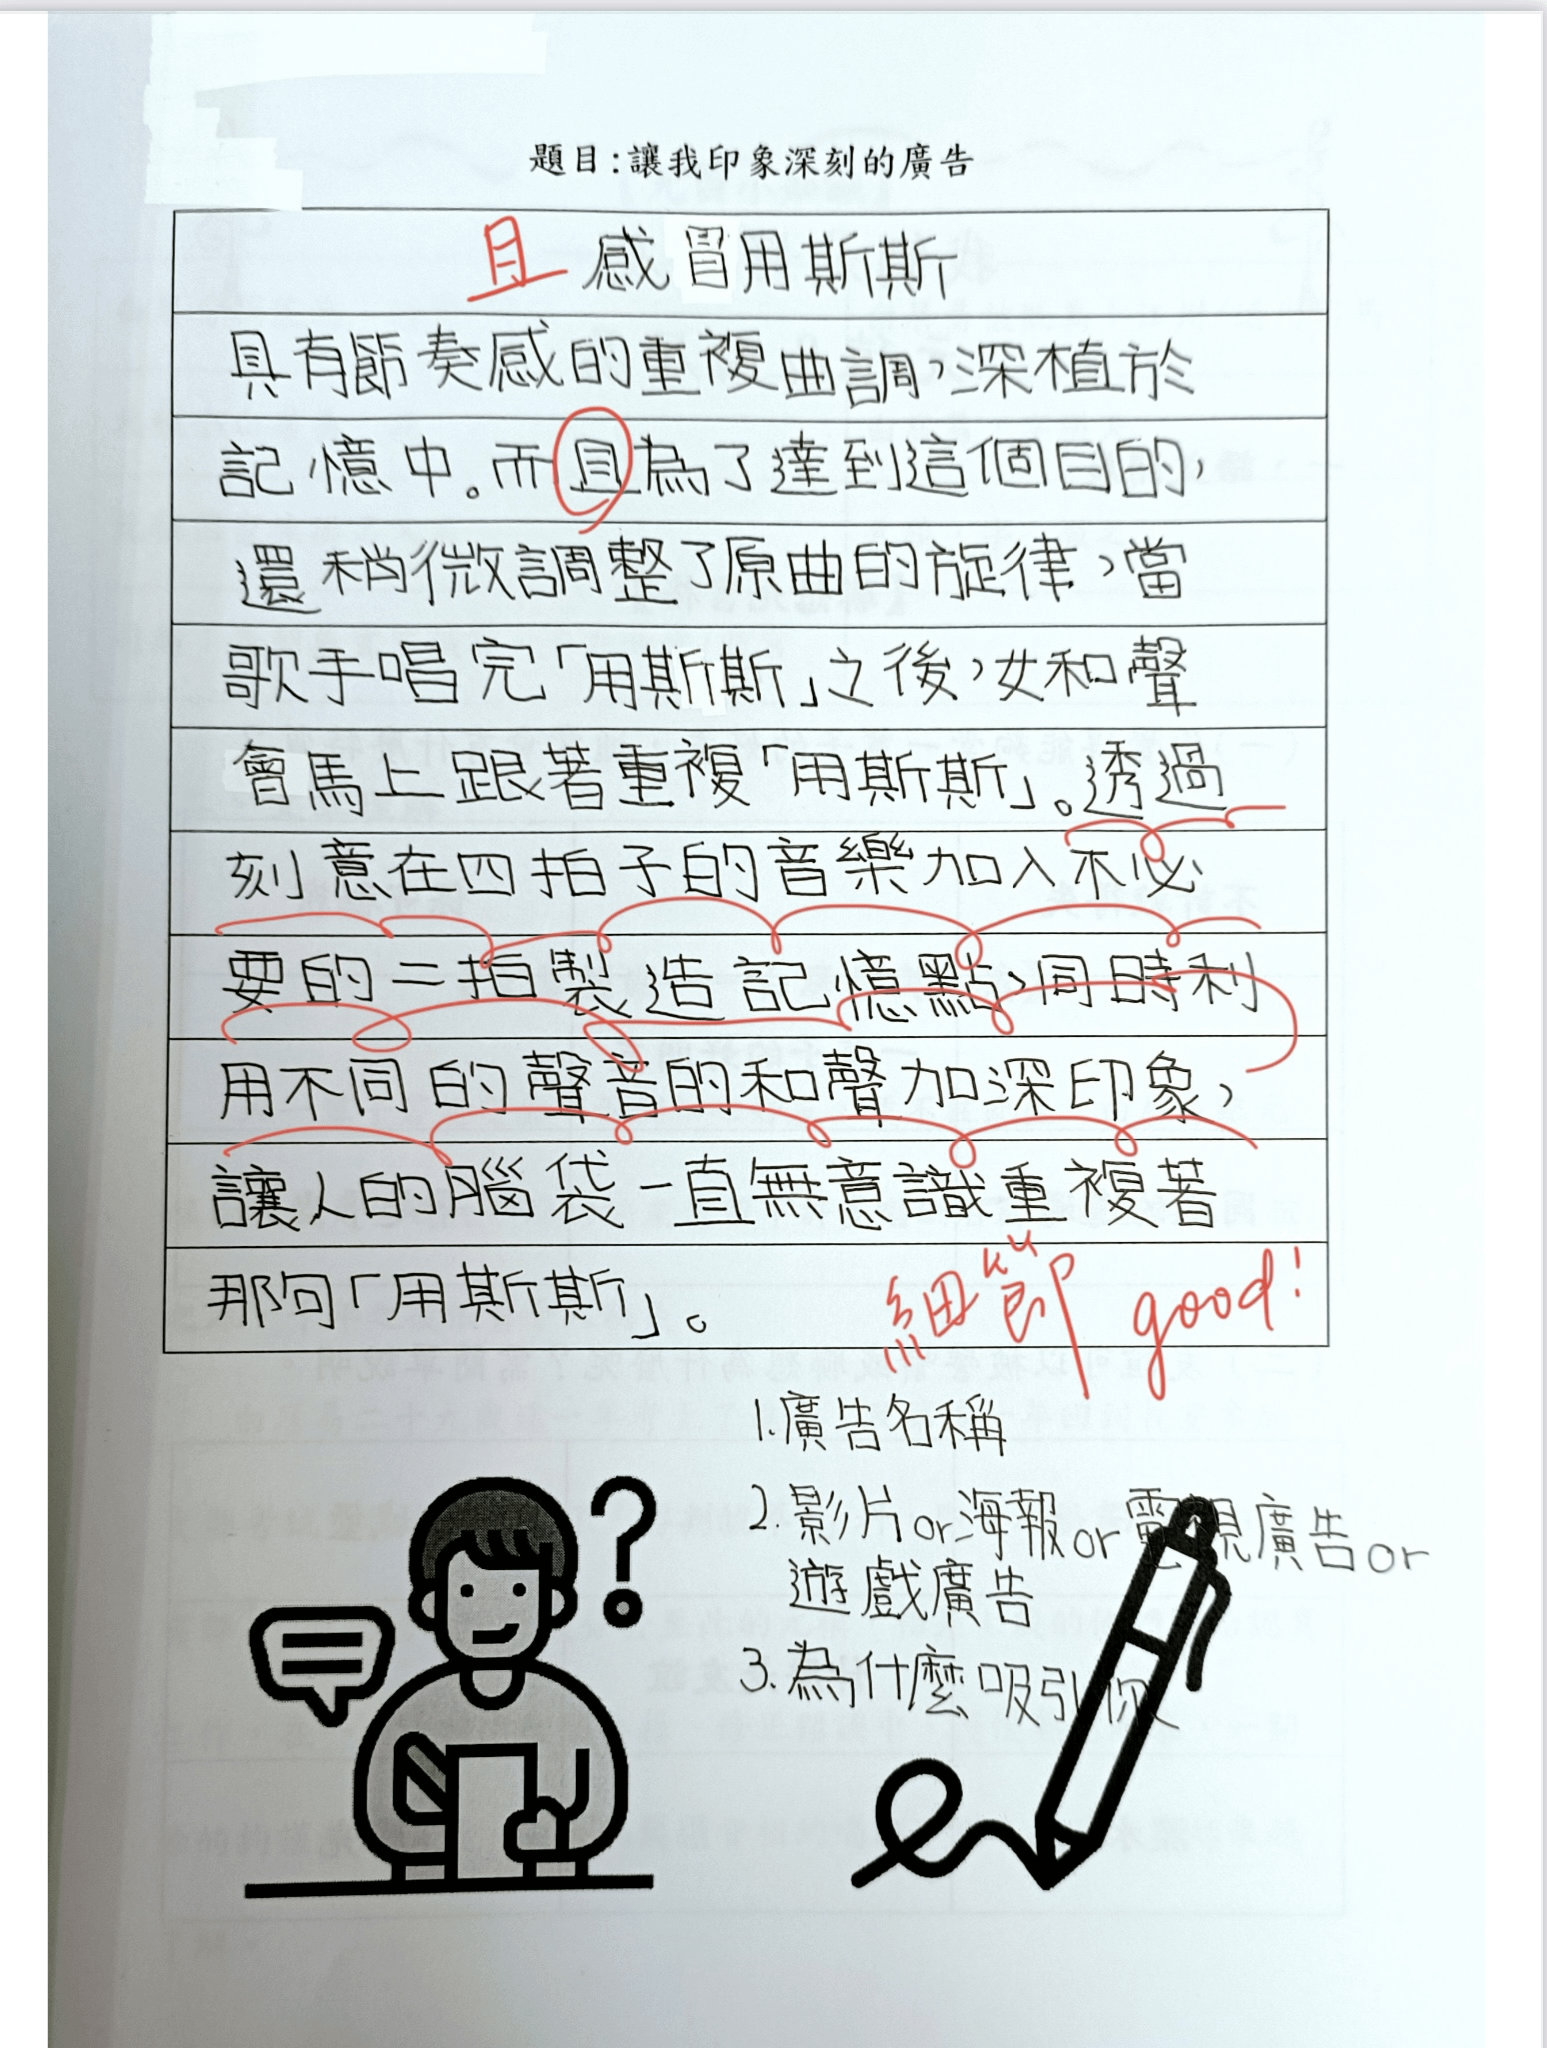 題目:讓我印象深刻的廣告
且 感冒用斯斯
具有節奏感的重複曲調,深植於
記憶中。而且為了達到這個目的,
還稍微調整了原曲的旋律,當
歌手唱完「用斯斯」之後,女和聲
會馬上跟著重複「用斯斯」。透過
刻意在四拍子的音樂加入不必
要的二拍製造記憶點,同時利
用不同的聲音的和聲加深印象,
讓人的腦袋一直無意識重複著
那句「用斯斯」。
細節 good!
1.廣告名稱
2.影片or海報or電視廣告or
遊戲廣告
3.為什麼吸引你